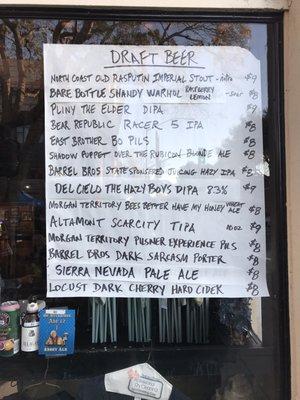 DRAFT BEER
NORTH COAST OLD RASPUTIN IMPERIAL STOUT - nitro $9
BARE BOTTLE SHANDY WARHOL RASPBERRY LEMON - SOUR $8
PLINY THE ELDER DIPA $9
BEAR REPUBLIC RACER 5 IPA $8
EAST BROTHER BO PILS $8
SHADOW PUPPET OVER THE RUBICON BLONDE ALE $8
BARREL BROS STATE SPONSERED JUICING HAZY IPA $8
DEL CIELO THE HAZY BOYS DIPA 8.3% $9
MORGAN TERRITORY BEES BETTER HAVE MY HONEY WHEAT ALE $8
ALTAMONT SCARCITY TIPA 10oz $9
MORGAN TERRITORY PILSNER EXPERIENCE PILS $8
BARREL BROS DARK SARCASM PORTER $8
SIERRA NEVADA PALE ALE $8
LOCUST DARK CHERRY HARD CIDER $8